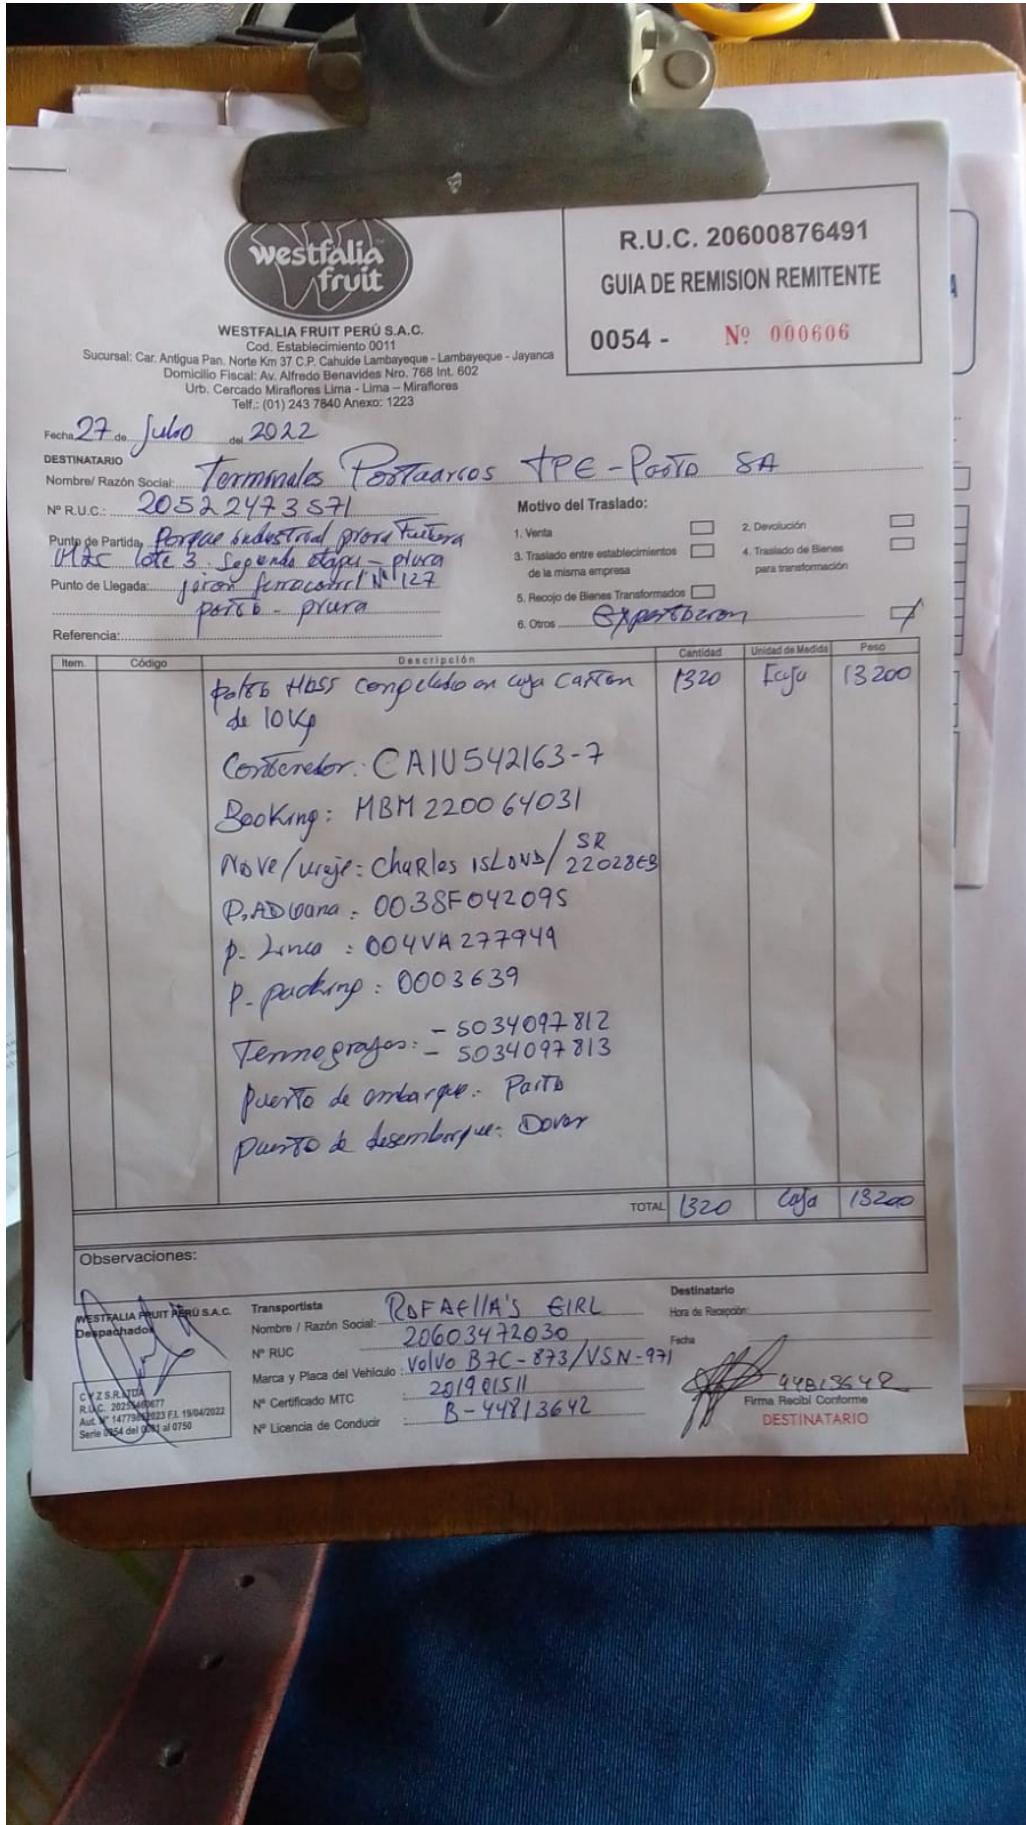 westfalia
fruit
WESTFALIA FRUIT PERÚ S.A.C.
Cod. Establecimiento 0011
Sucursal: Car. Antigua Pan. Norte Km 37 C.P. Cahuide Lambayeque - Lambayeque - Jayanca
Domicilio Fiscal: Av. Alfredo Benavides Nro. 768 Int. 602
Urb. Cercado Miraflores Lima - Lima – Miraflores
Telf.: (01) 243 7840 Anexo: 1223
R.U.C. 20600876491
GUIA DE REMISION REMITENTE
0054 - Nº 000606
Fecha 27 de Julio del 2022
DESTINATARIO
Nombre/ Razón Social: Terminales Portuarios TPE-Paita SA
Nº R.U.C.: 20522473571
Punto de Partida: Parque industrial piura Futura
Mzc lote 3. Segunda etapa - piura
Punto de Llegada: jiron ferrocarril Nº 127
paita - piura
Referencia:
Motivo del Traslado:
1. Venta
2. Devolución
3. Traslado entre establecimientos
de la misma empresa
4. Traslado de Bienes
para transformación
5. Recojo de Bienes Transformados
6. Otros exportacion
Item. Código Descripción Cantidad Unidad de Medida Peso
palta Hass congelado en caja Carton 1320 Caja 13200
de 10Kg
Contenedor: CAIU542163-7
Booking: MBM220064031
Nave/viaje: Charles ISLAND/ SR
22028EB
P. ADuana: 0038F042095
P. Linea: 004VA277949
P. packing: 0003639
Termografos: - 5034097812
- 5034097813
puerto de embarque: Paita
puerto de desembarque: Dover
TOTAL 1320 Caja 13200
Observaciones:
WESTFALIA FRUIT PERÚ S.A.C.
Despachador
C Y Z S.R.LTDA
Serie 0054 del 0001 al 0750
Transportista
Nombre / Razón Social: RAFAEllA'S EIRL
Nº RUC 20603472030
Marca y Placa del Vehiculo : Volvo B7C-873/VSN-971
Nº Certificado MTC : 201901511
Nº Licencia de Conducir : B-44813642
Destinatario
Hora de Recepción:
Fecha
44813642
Firma Recibí Conforme
DESTINATARIO